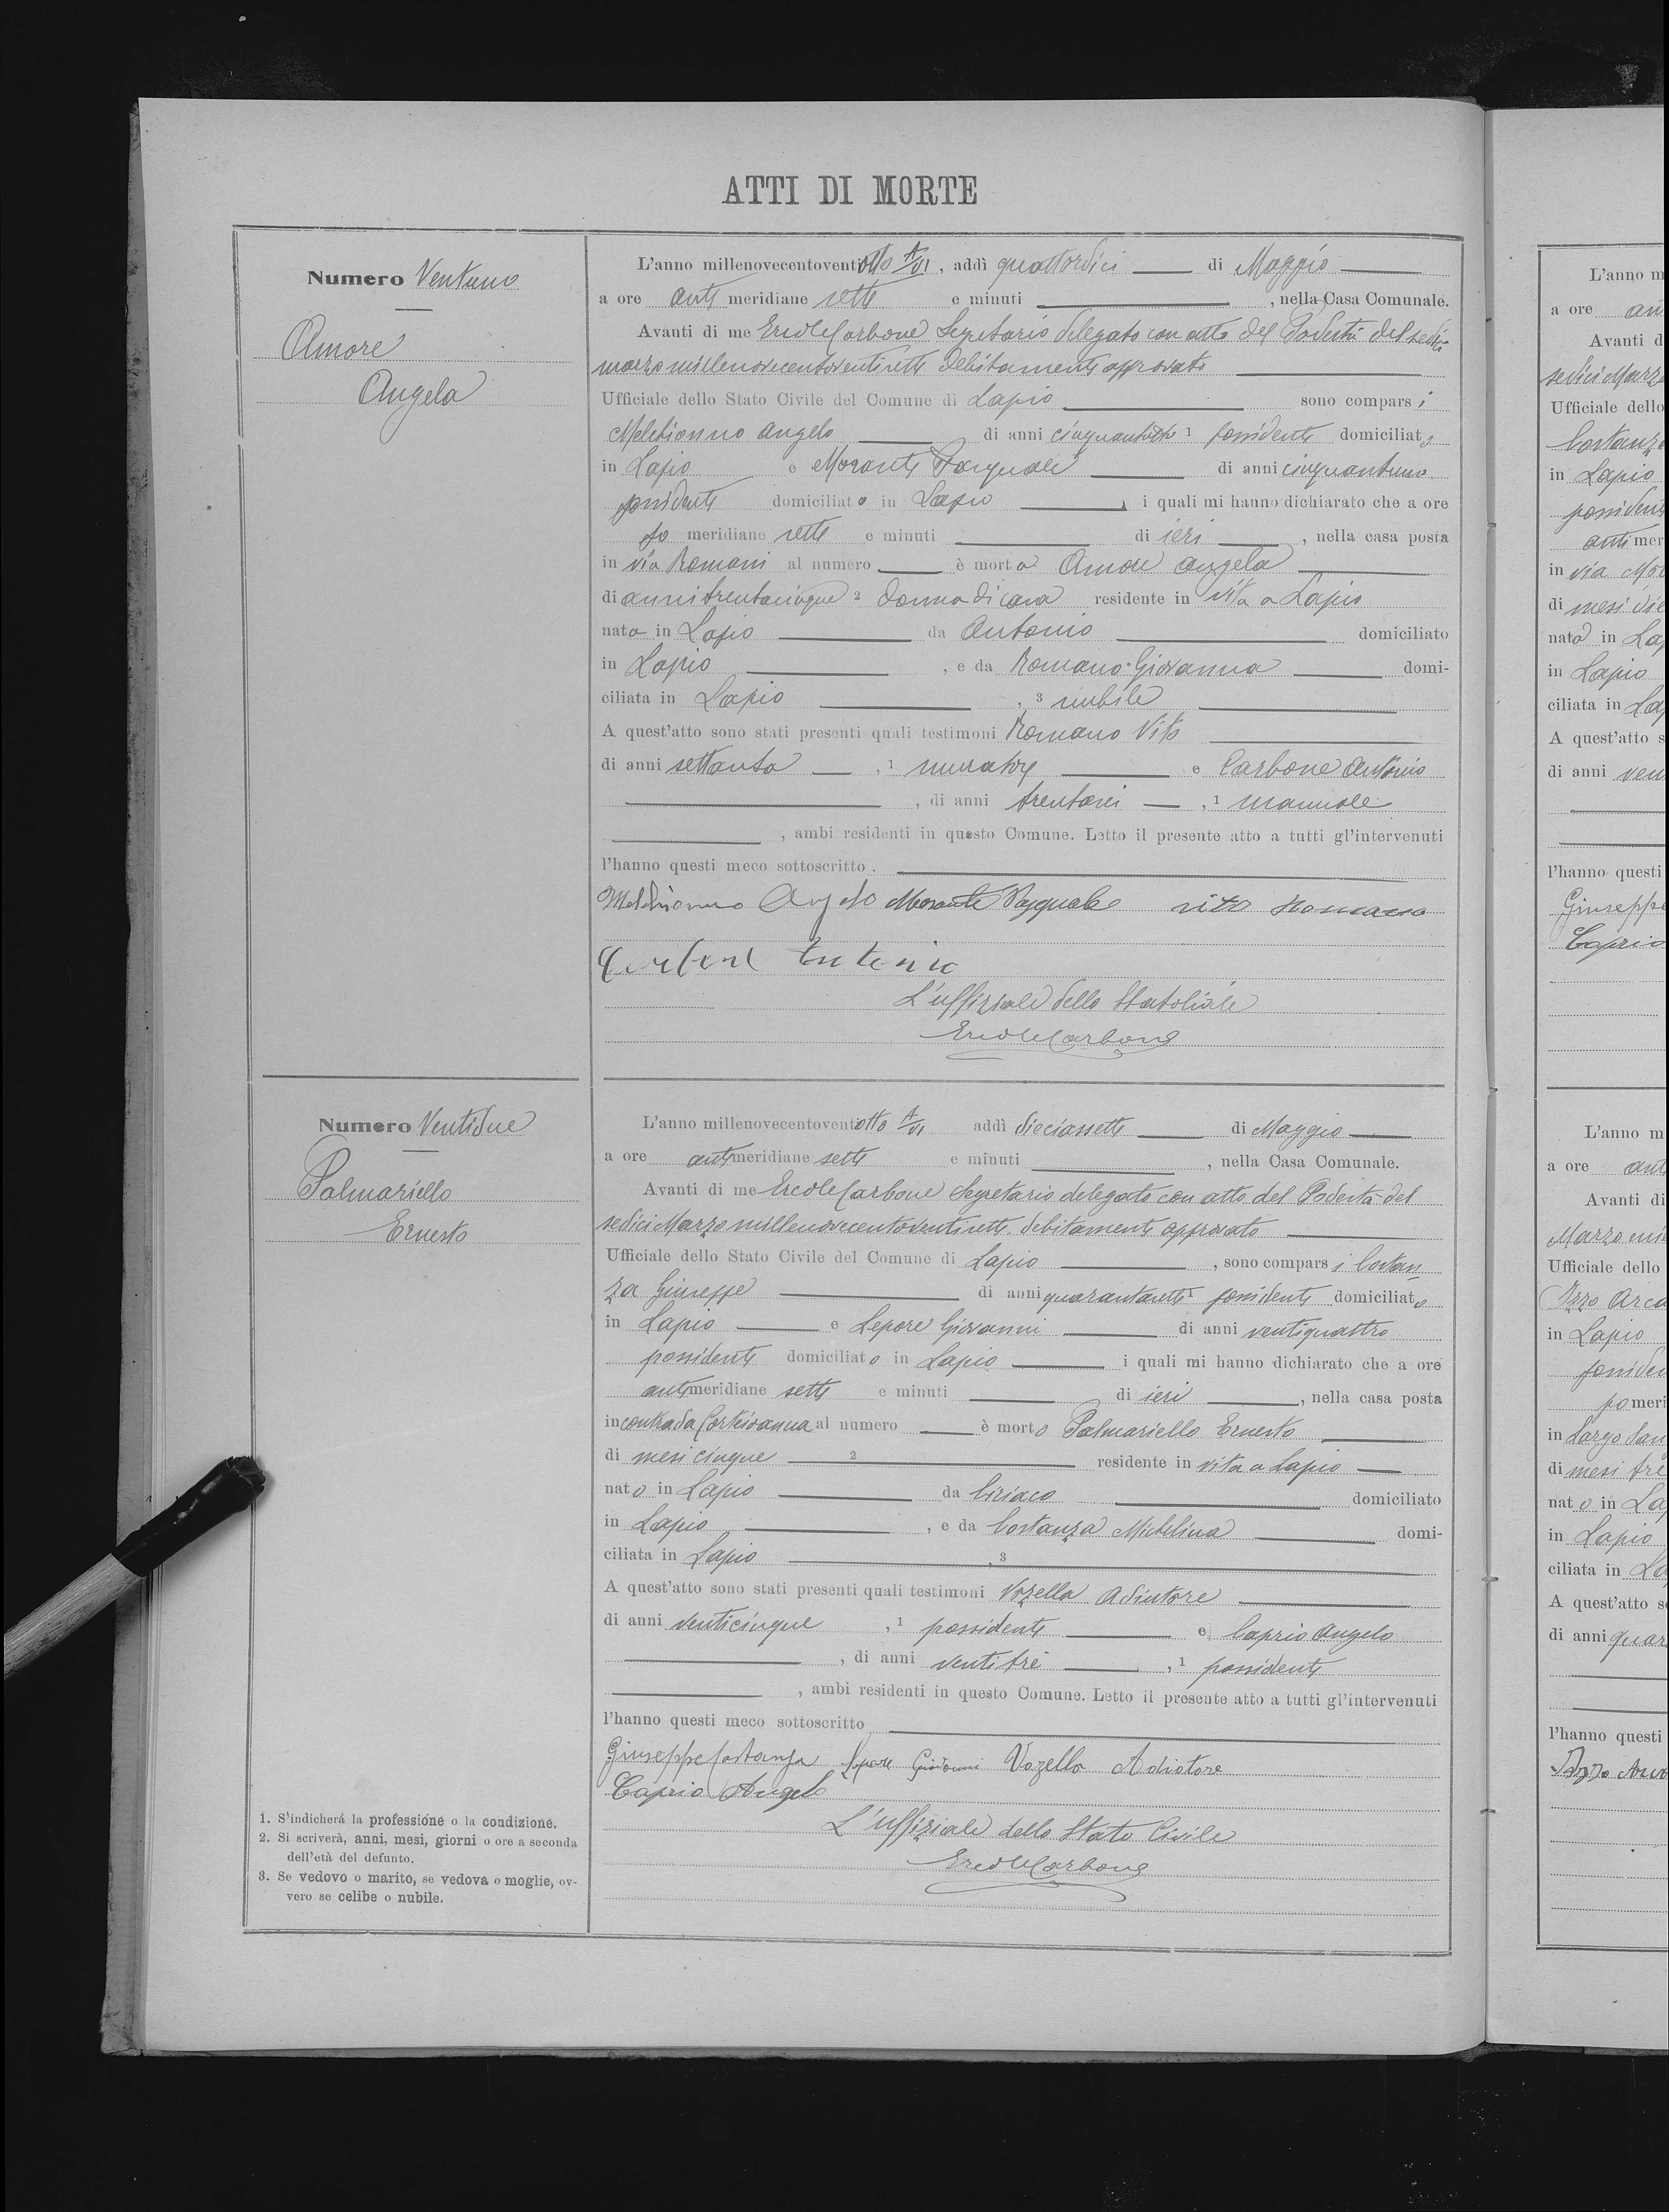 ATTI DI MORTE
Numero Ventuno
Amore
Angela
L'anno millenovecentoventiotto A/VI, addì quattordici di Maggio
a ore anti meridiane sette e minuti , nella Casa Comunale.
Avanti di me Ercole Carbone Segretario delegato con atto del Podestà del sedici
marzo millenovecentoventisette debitamente approvato
Ufficiale dello Stato Civile del Comune di Lapio sono comparsi
Melchionno Angelo di anni 1 possidente domiciliato
in Lapio e Morante Pasquale di anni cinquantuno
possidente domiciliato in Lapio , i quali mi hanno dichiarato che a ore
po meridiane sette e minuti di ieri , nella casa posta
in via Romani al numero è morta Amore Angela
di anni trentacinque 2 donna di casa residente in vita a Lapio
nata in Lapio da Antonio domiciliato
in Lapio , e da Romano Giovanna domi-
ciliata in Lapio , 3 nubile
A quest'atto sono stati presenti quali testimoni Romano Vito
di anni settanta , 1 muratore e Carbone Antonio
, di anni trentasei , 1 manuale
, ambi residenti in questo Comune. Letto il presente atto a tutti gl'intervenuti
l'hanno questi meco sottoscritto.
Melchionno Angelo Morante Pasquale vito Romano
Carbone Antonio
L'uffiziale dello Stato Civile
Ercole Carbone
Numero Ventidue
Palmariello
Ernesto
L'anno millenovecentoventiotto A/VI addì dieciassette di Maggio
a ore antimeridiane sette e minuti , nella Casa Comunale.
Avanti di me Ercole Carbone Segretario delegato con atto del Podestà del
sedici Marzo millenovecentoventisette debitamente approvato
Ufficiale dello Stato Civile del Comune di Lapio , sono comparsi Costan
za Giuseppe di anni quarantasette 1 possidente domiciliato
in Lapio e Lepore Giovanni di anni ventiquattro
possidente domiciliato in Lapio i quali mi hanno dichiarato che a ore
antimeridiane sette e minuti di ieri , nella casa posta
in contrada al numero è morto Palmariello Ernesto
di mesi cinque 2 residente in vita a Lapio
nato in Lapio da Ciriaco domiciliato
in Lapio , e da Costanza Michelina domi-
ciliata in Lapio , 3
A quest'atto sono stati presenti quali testimoni Vozella Adiutore
di anni venticinque , 1 possidente e Caprio Angelo
, di anni ventitre , 1 possidente
, ambi residenti in questo Comune. Letto il presente atto a tutti gl'intervenuti
l'hanno questi meco sottoscritto
Giuseppe Costanza Lepore Giovanni Vozella Adiotore
Caprio Angelo
L'uffiziale dello Stato Civile
Ercole Carbone
1. S'indicherá la professióne o la condizione.
2. Si scriverà, anni, mesi, giorni o ore a seconda
dell'età del defunto.
3. Se vedovo o marito, se vedova o moglie, ov-
vero se celibe o nubile.
L'anno m
a ore an
Avanti d
sedici Marzo
Ufficiale dello
Costanza
in Lapio
possident
anti mer
in via
di mesi
nata in La
in Lapio
ciliata in La
A quest'atto s
di anni ven
l'hanno questi
Giuseppe
Caprio
L'anno m
a ore ant
Avanti di
Marzo
Ufficiale dello
Izzo Arca
in Lapio
possiden
po meri
in Largo San
di mesi tre
nato in La
in Lapio
ciliata in La
A quest'atto s
di anni quar
l'hanno questi
Izzo